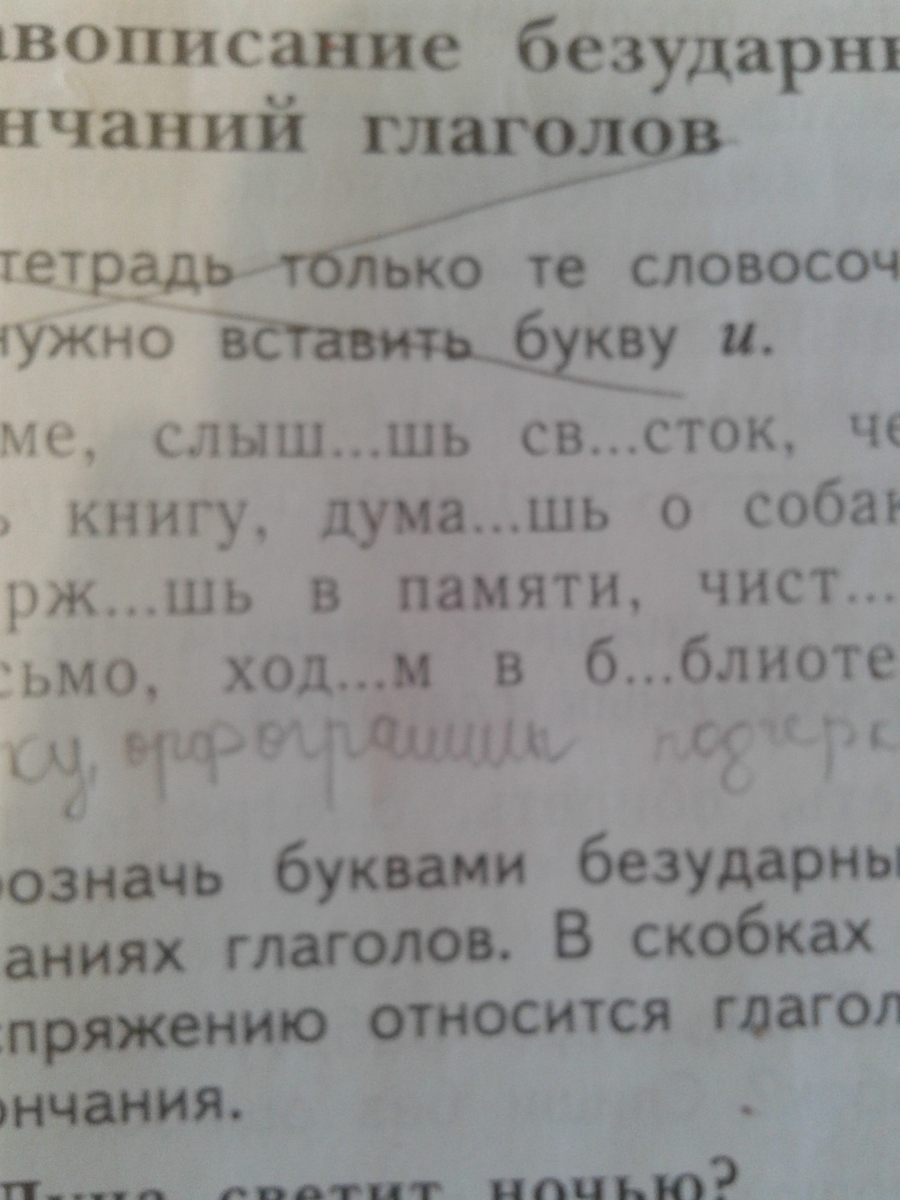 авописание безударны
нчаний глаголов
тетрадь только те словосоч
нужно вставить букву и.
ме, слыш...шь св...сток, че
ь книгу, дума...шь о собак
рж...шь в памяти, чист...
сьмо, ход...м в б...блиоте
ку, орфограммы подчерк
означь буквами безударны
аниях глаголов. В скобках
спряжению относится глагол
ончания.
Луна светит ночью?